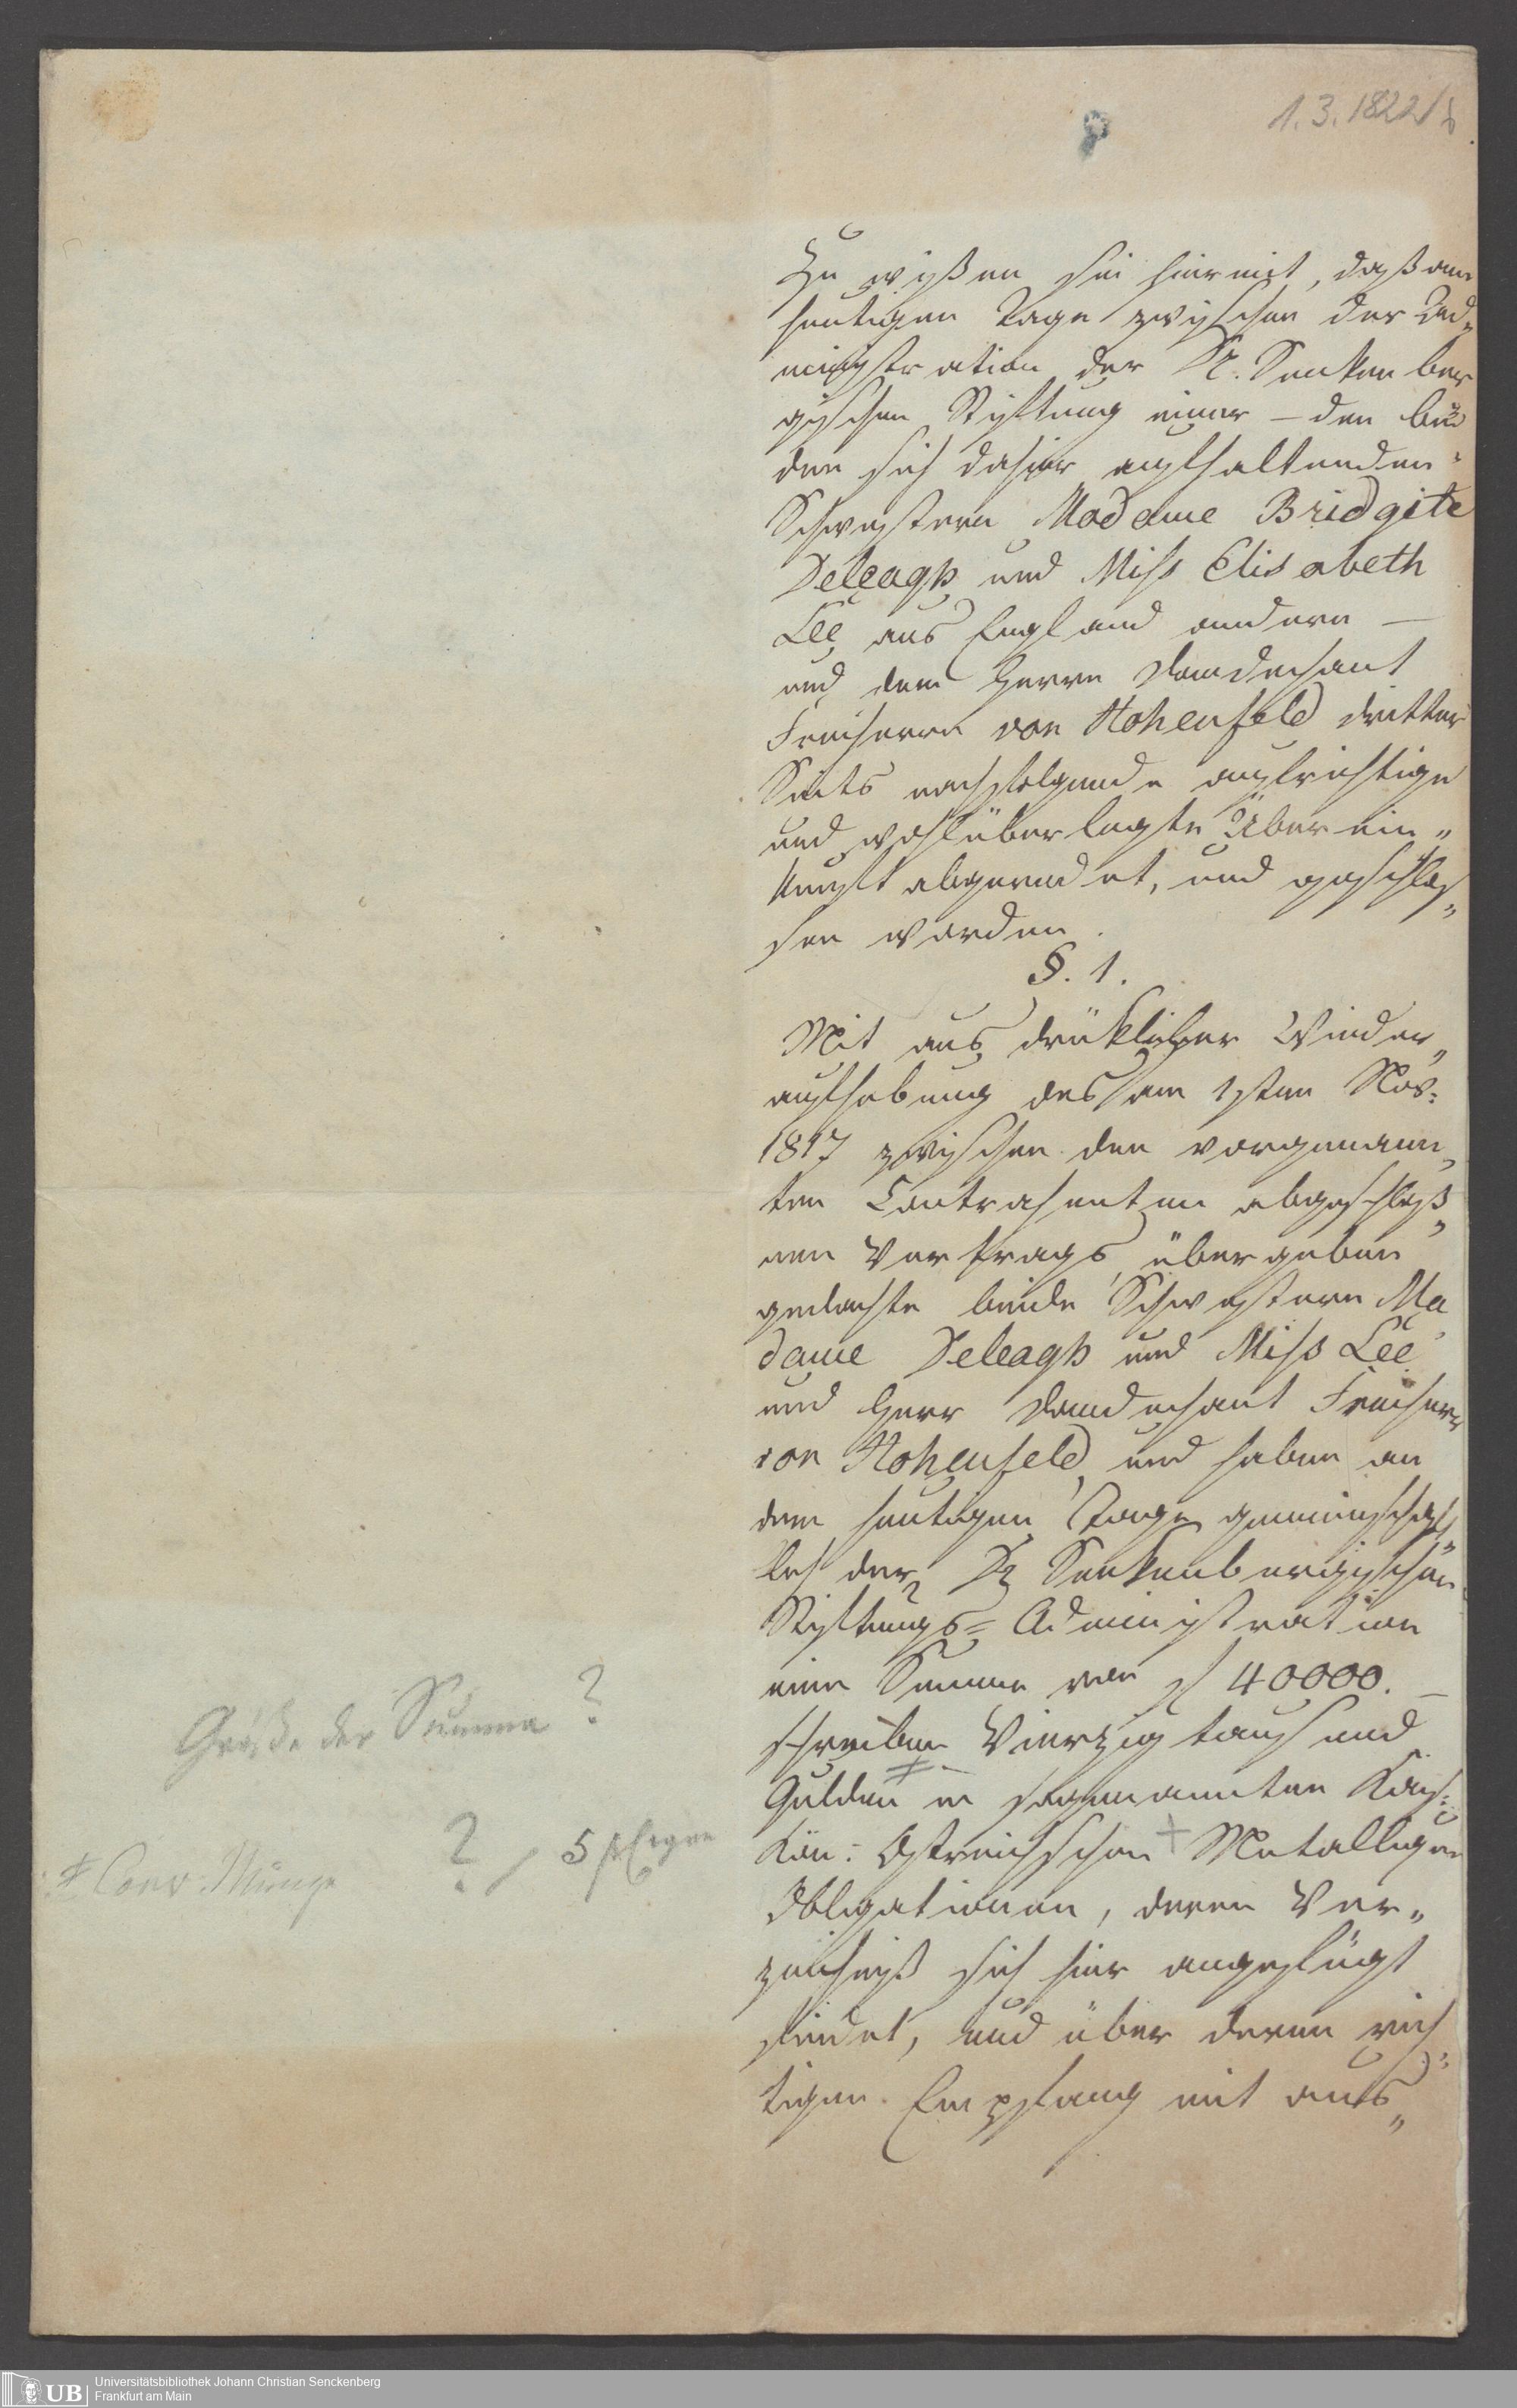 1.3.1822/
Zu wißen sei hiermit, daß am
heutigen Tage zwischen der Ad„
ministration der Dr. Senkenber
gischen Stiftung einer – den bei
den sich dahier aufhaltenden
Schwestern Madame Bridgite
Deleagh und Miss Elisabeth
Lee aus England andern –
und dem Herrn Domdechant
Freiherrn von Hohenfeld dritter
Seits nachfolgende aufrichtige
und wohlüberlegte Überein„
kunft abgeredet, und geschlos„
sen worden.
§. 1.
Mit ausdrüklicher Wieder„
aufhebung des am 1sten Nov:
1817 zwischen den vorgenann„
ten Contrahenten abgeschloß„
nen Vertrags übergeben
gedachte beide Schwestern Ma
dame Deleagh und Miss Lee
und Herr Domdechant Freiherr
von Hohenfeld und haben an
dem heutigen Tage gemeinschaft„
lich der Dr Senkenbergischen
Stiftungs= Administration
eine Summe von fl 40000. –
schreibe Vierzigtausend
Gulden in sogenannten Kais:
Kön: Östreichschen + Metalliquen
Obligationen, deren Ver„
zeichniß sich hier angefügt
findet, und über deren rich„
tigen Empfang mit aus„
Größe der Summa ?
‡ Conv. Münze ? / 5 pC